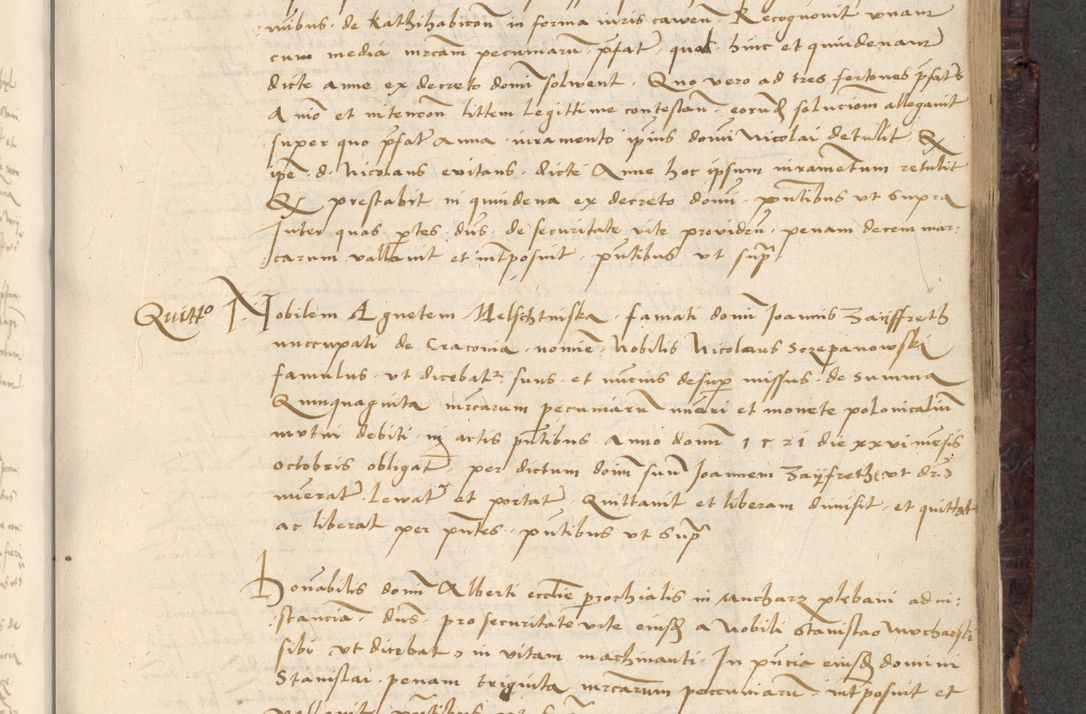 nibus de Rathihabicoñ in forma iuris caven. Recognovit unam
cum media mrcam pecuniarũ pfat, quas hinc et quindenam
dicte Anne ex decreto domi solvent. Quo vero ad tres fertones pfatos
A nio et intencoñ littem legittime contestan, eorund solucionem allegavit
super quo pfat Anna iuramento ipius domi Nicolai detulit Et
ipe d. Nicolaus evitans dicte Anne hoc ipsum iuramentum retulit
Qd prestabit in quindena ex decreto domi. pntibus ut supra
Inter quas ptes dus de securitate vite providen, penam decem mar:
carum vallavit et intposuit. pntibus ut supra
Quitto Nobilem Agnetem Melschtinska, famati domi Joannis Zaiffreth
nuccupati de Cracovia, nomie, Nobilis Nicolaus Sczepanowski
famulus, ut dicebatr, suus, et nuncius desup missus, de summa
Quinquaginta mrcarum pecuniarũ nueri et monete polonicaliũ
mutui debiti in actis pntibus Anno domi 1521 die xxvi mesis
octobris obligat, per dictum domi suũ Joannem Zayfreth ut dr
nuerat Lewat et portat, Quittavit et liberam dimisit, et quittat
ac liberat per pntes, pntibus ut supra
Honabilis domi Alberti ecclie parochialis in Mucharz plebani ad in:
stanciã, dus, pro securitate vite eiusd a Nobili Stanislao Mochaczki
sibi ut dicebat, in vitam machinanti. In pncia eiusd domini
Stanislai penam triginta mrcarum peccuniarũ, intposuit et
vallavit pntibus ut supra